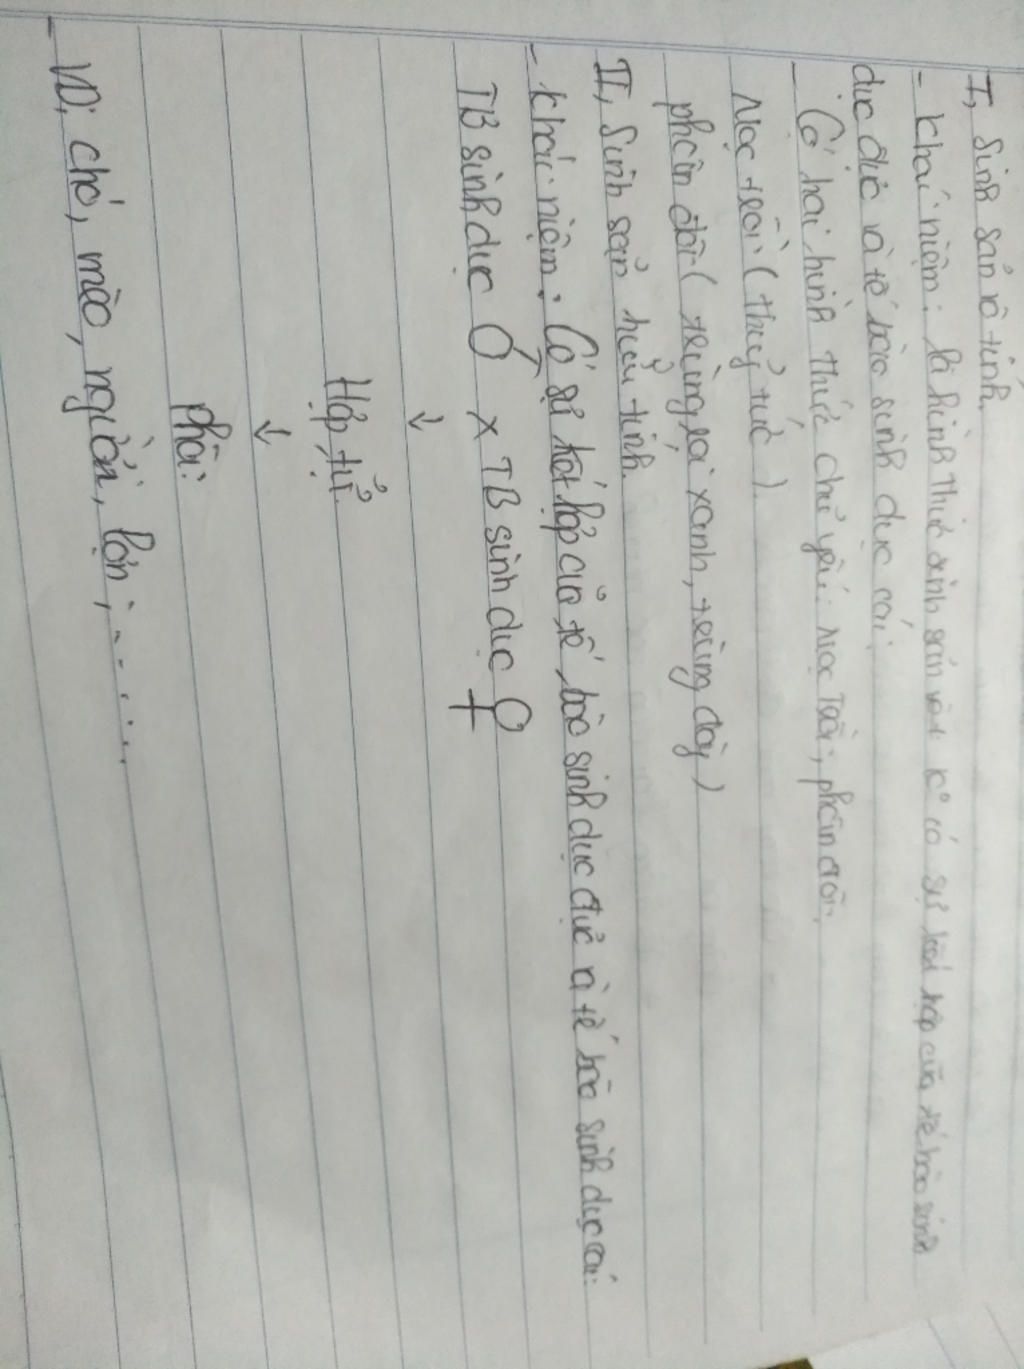 I, Sinh sản vô tính.
- Khái niệm: là hình thức sinh sản mà k° có sự kết hợp của tế bào sinh
dục đực và tế bào sinh dục cái.
- Có hai hình thức chủ yếu: Mọc chồi, phân đôi.
Mọc chồi (thuỷ tức).
phân đôi (trùng roi xanh, trùng đày)
II, Sinh sản hữu tính.
- Khái niệm: Có sự kết hợp của tế bào sinh dục đực và tế bào sinh dục cái.
TB sinh dục ♂ x TB sinh dục ♀
↓
Hợp tử
↓
phôi.
- VD: chó, mào, người, lợn, .....